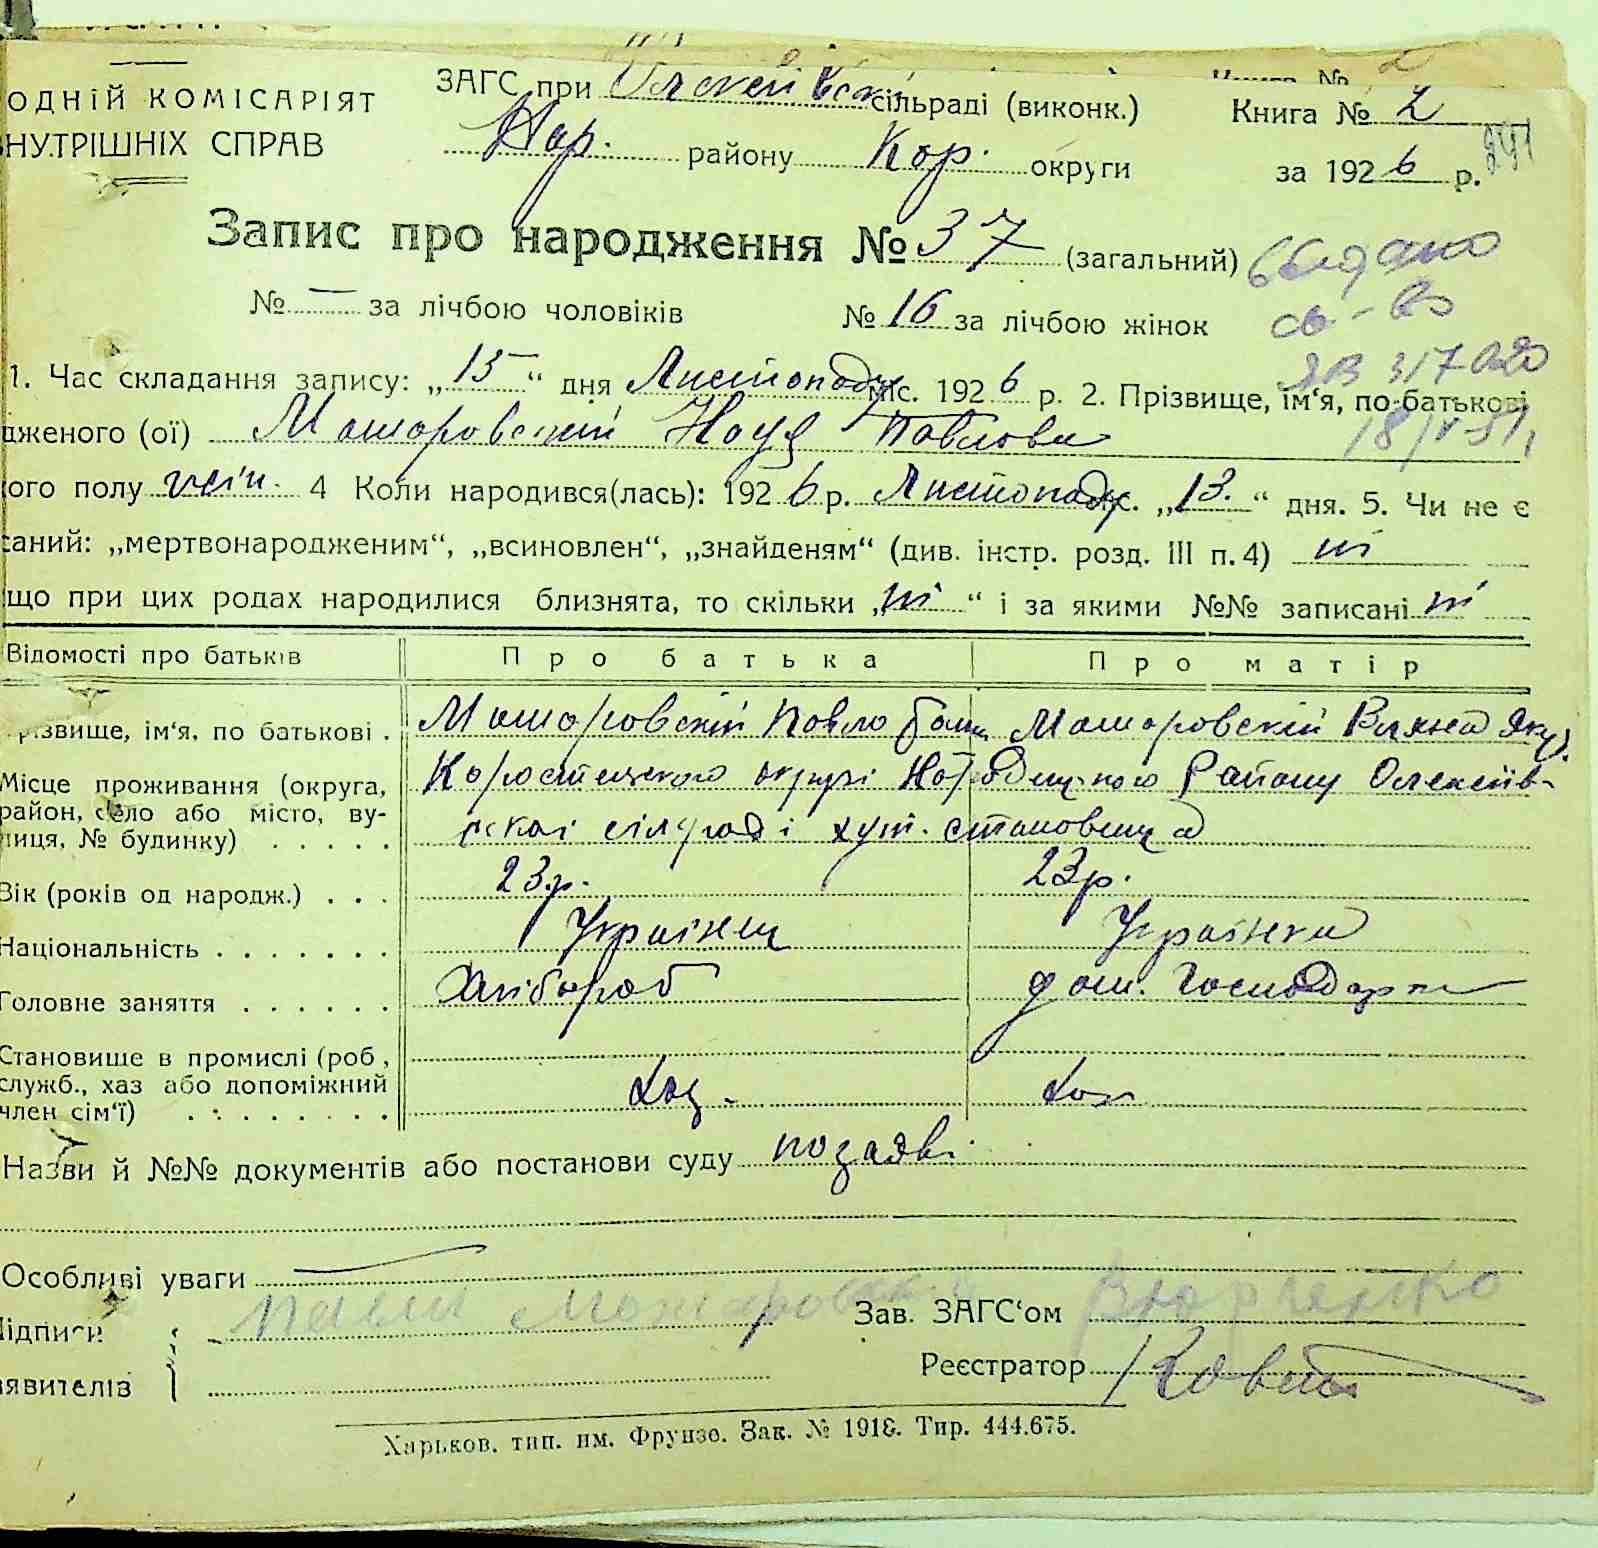 ОДНІЙ КОМІСАРІЯТ
НУТРІШНІХ СПРАВ
ЗАГС при сільраді (виконк.)
Нар. району Кор. округи
Книга №
Книга № 2
за 1926 р.
Запис про народження № 37 (загальний)
№ — за лічбою чоловіків № 16 за лічбою жінок
выдано
св-во
317020
1. Час складання запису: „15“ дня Листопаду міс. 1926 р. 2. Прізвище, ім‘я, по-батькові
дженого (ої) Павлова
ого полу жін. 4 Коли народився(лась): 1926 р. Листопаду с. „13.“ дня. 5. Чи не є
саний: „мертвонародженим“, „всиновлен“, „знайденям“ (див. інстр. розд. III п. 4) ні
що при цих родах народилися близнята, то скільки „ні“ і за якими №№ записані ні
Відомості про батьків Про батька Про матір
різвище, ім‘я, по батькові . Можаровскій Павло Можаровскій
Місце проживання (округа, район, село або місто, вулиця, № будинку) . . . . .
Коростенского округі Народицкого Району Олексіїв-
скої сільраді хут. Становища
Вік (років од народж.) . . . 23 р. 23 р.
Національність . . . . . . . Українец Українка
Головне заняття . . . . . . Хлібороб дом. Господарка
Становище в промислі (роб., служб., хаз або допоміжний член сім‘ї) . . . . . . . . Хоз.
Назви й №№ документів або постанови суду по заяві
Особливі уваги —
ідписи Можаровский Зав. ЗАГС‘ом
аявителів Реєстратор
Харьков. тип. им. Фрунзе. Зак. № 1918. Тир. 444.675.